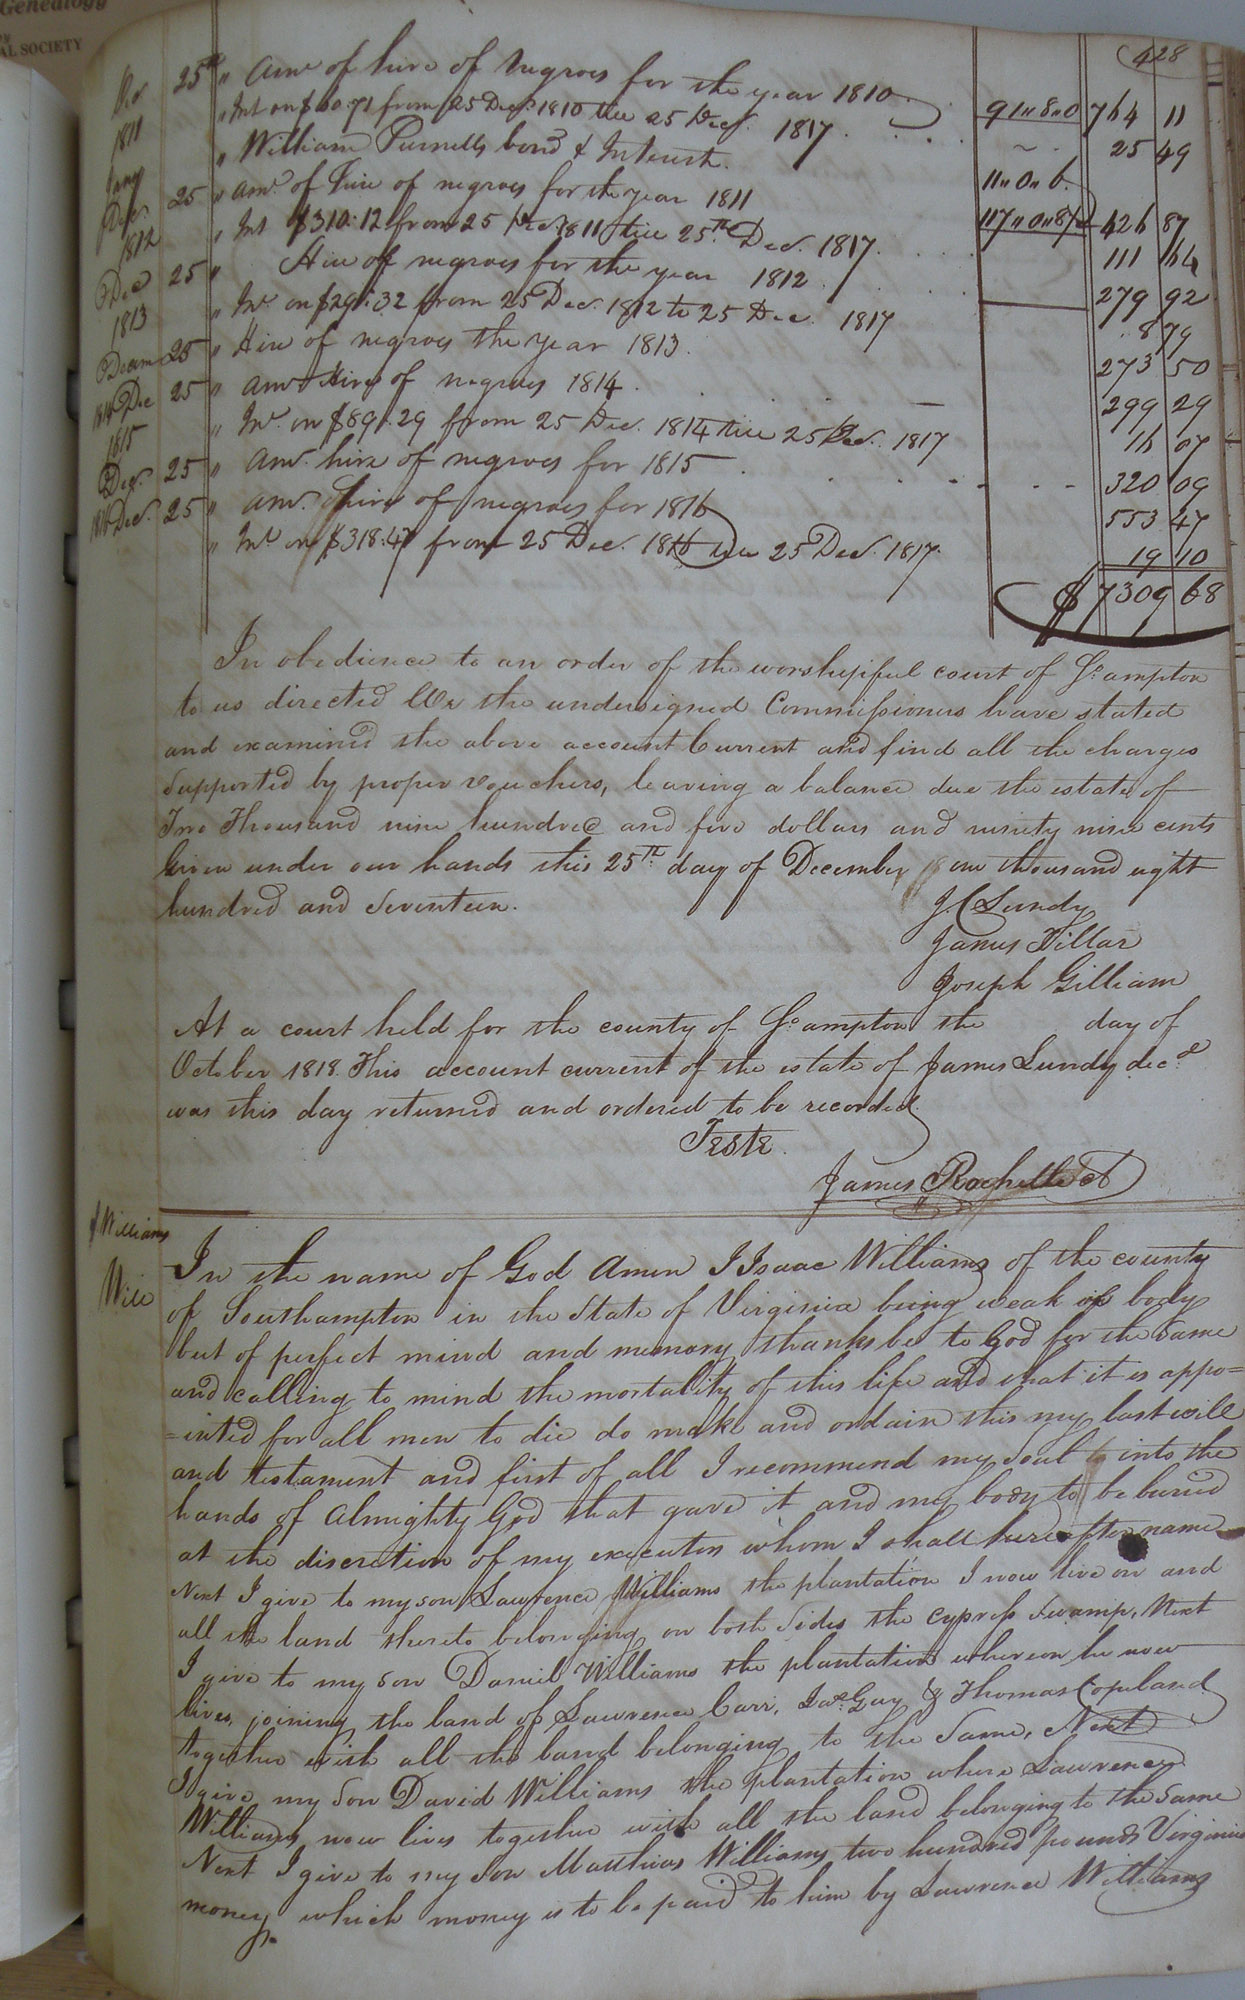 Genealogy
AL SOCIETY
428
25th " Amt of hire of Negroes for the year 1810 91"8"0 764 11
1811 " Int on $ 60.71 from 25 Dec. 1810 till 25 Dec. 1817 25 49
" William Purnells bond & Interest. 11"0"6
Dec. 25 " Amt. of hire of negroes for the year 1811 117"0"8 426 87
1812 " Int $310.12 from 25 Dec. 1811 till 25th Dec. 1817. 111 64
Dec 25 " Hire of negroes for the year 1812 279 92
1813 " Int on $29.32 from 25 Dec. 1812 to 25 Dec 1817 8 79
25 " Hire of negroes the year 1813. 273 50
1814 Dec 25 " Amt Hire of negroes 1814. 299 29
1815 " Int. on $89.29 from 25 Dec. 1814 till 25 Dec. 1817 16 07
Dec. 25 " Amt. hire of negroes for 1815 320 09
1816 Dec. 25 " Amt. Hire of negroes for 1816 553 47
" Int on $318.47 from 25 Dec. 1816 till 25 Dec. 1817. 19 10
$ 7309 68
In obedience to an order of the worshipful court of So. ampton
to us directed We the undersigned Commissioners have stated
and examined the above account Current and find all the charges
supported by proper vouchers, leaving a balance due the estate of
Two Thousand nine hundred and five dollars and ninety nine cents
Given under our hands this 25th. day of December one thousand eight
hundred and seventeen.
J. C Lundy
James Dillar
Joseph Gilliam
At a court held for the county of So. ampton the day of
October 1818. This account current of the estate of James Lundy decd
was this day returned and ordered to be recorded
Teste.
James Rochelle
Williams
Will
In the name of God Amen I Isaac Williams of the county
of Southampton in the State of Virginia being weak of body
but of perfect mind and memory thanks be to God for the same
and calling to mind the mortality of this life and that it is appo=
=inted for all men to die do make and ordain this my last will
and testament and first of all I recommend my soul into the
hands of Almighty God that gave it and my body to be buried
at the discretion of my executors whom I shall hereafter name
Next I give to my son Lawrence Williams the plantation I now live on and
all the land thereto belonging on both sides the cypress swamp, Next
I give to my son Daniel Williams the plantation whereon he now
lives, joining the land of Lawrence Carr, Jas. Gay & Thomas Copeland
together with all the land belonging to the same, Next
I give my son David Williams the plantation where Lawrence
Williams now lives together with all the land belonging to the same
Next I give to my son Matthias Williams two hundred pounds Virginia
money, which money is to be paid to him by Lawrence Williams